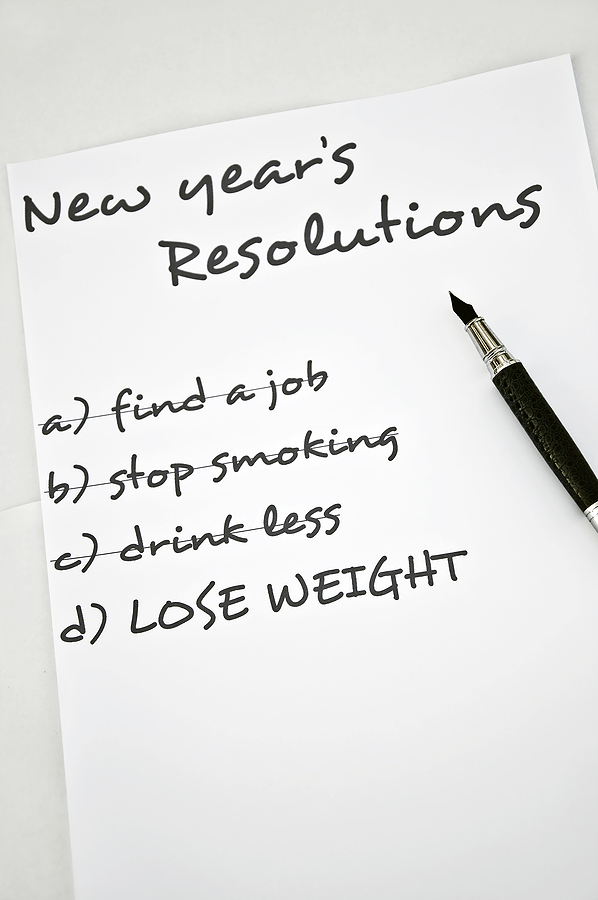 New year's
Resolutions
a) find a job
b) stop smoking
c) drink less
d) LOSE WEIGHT